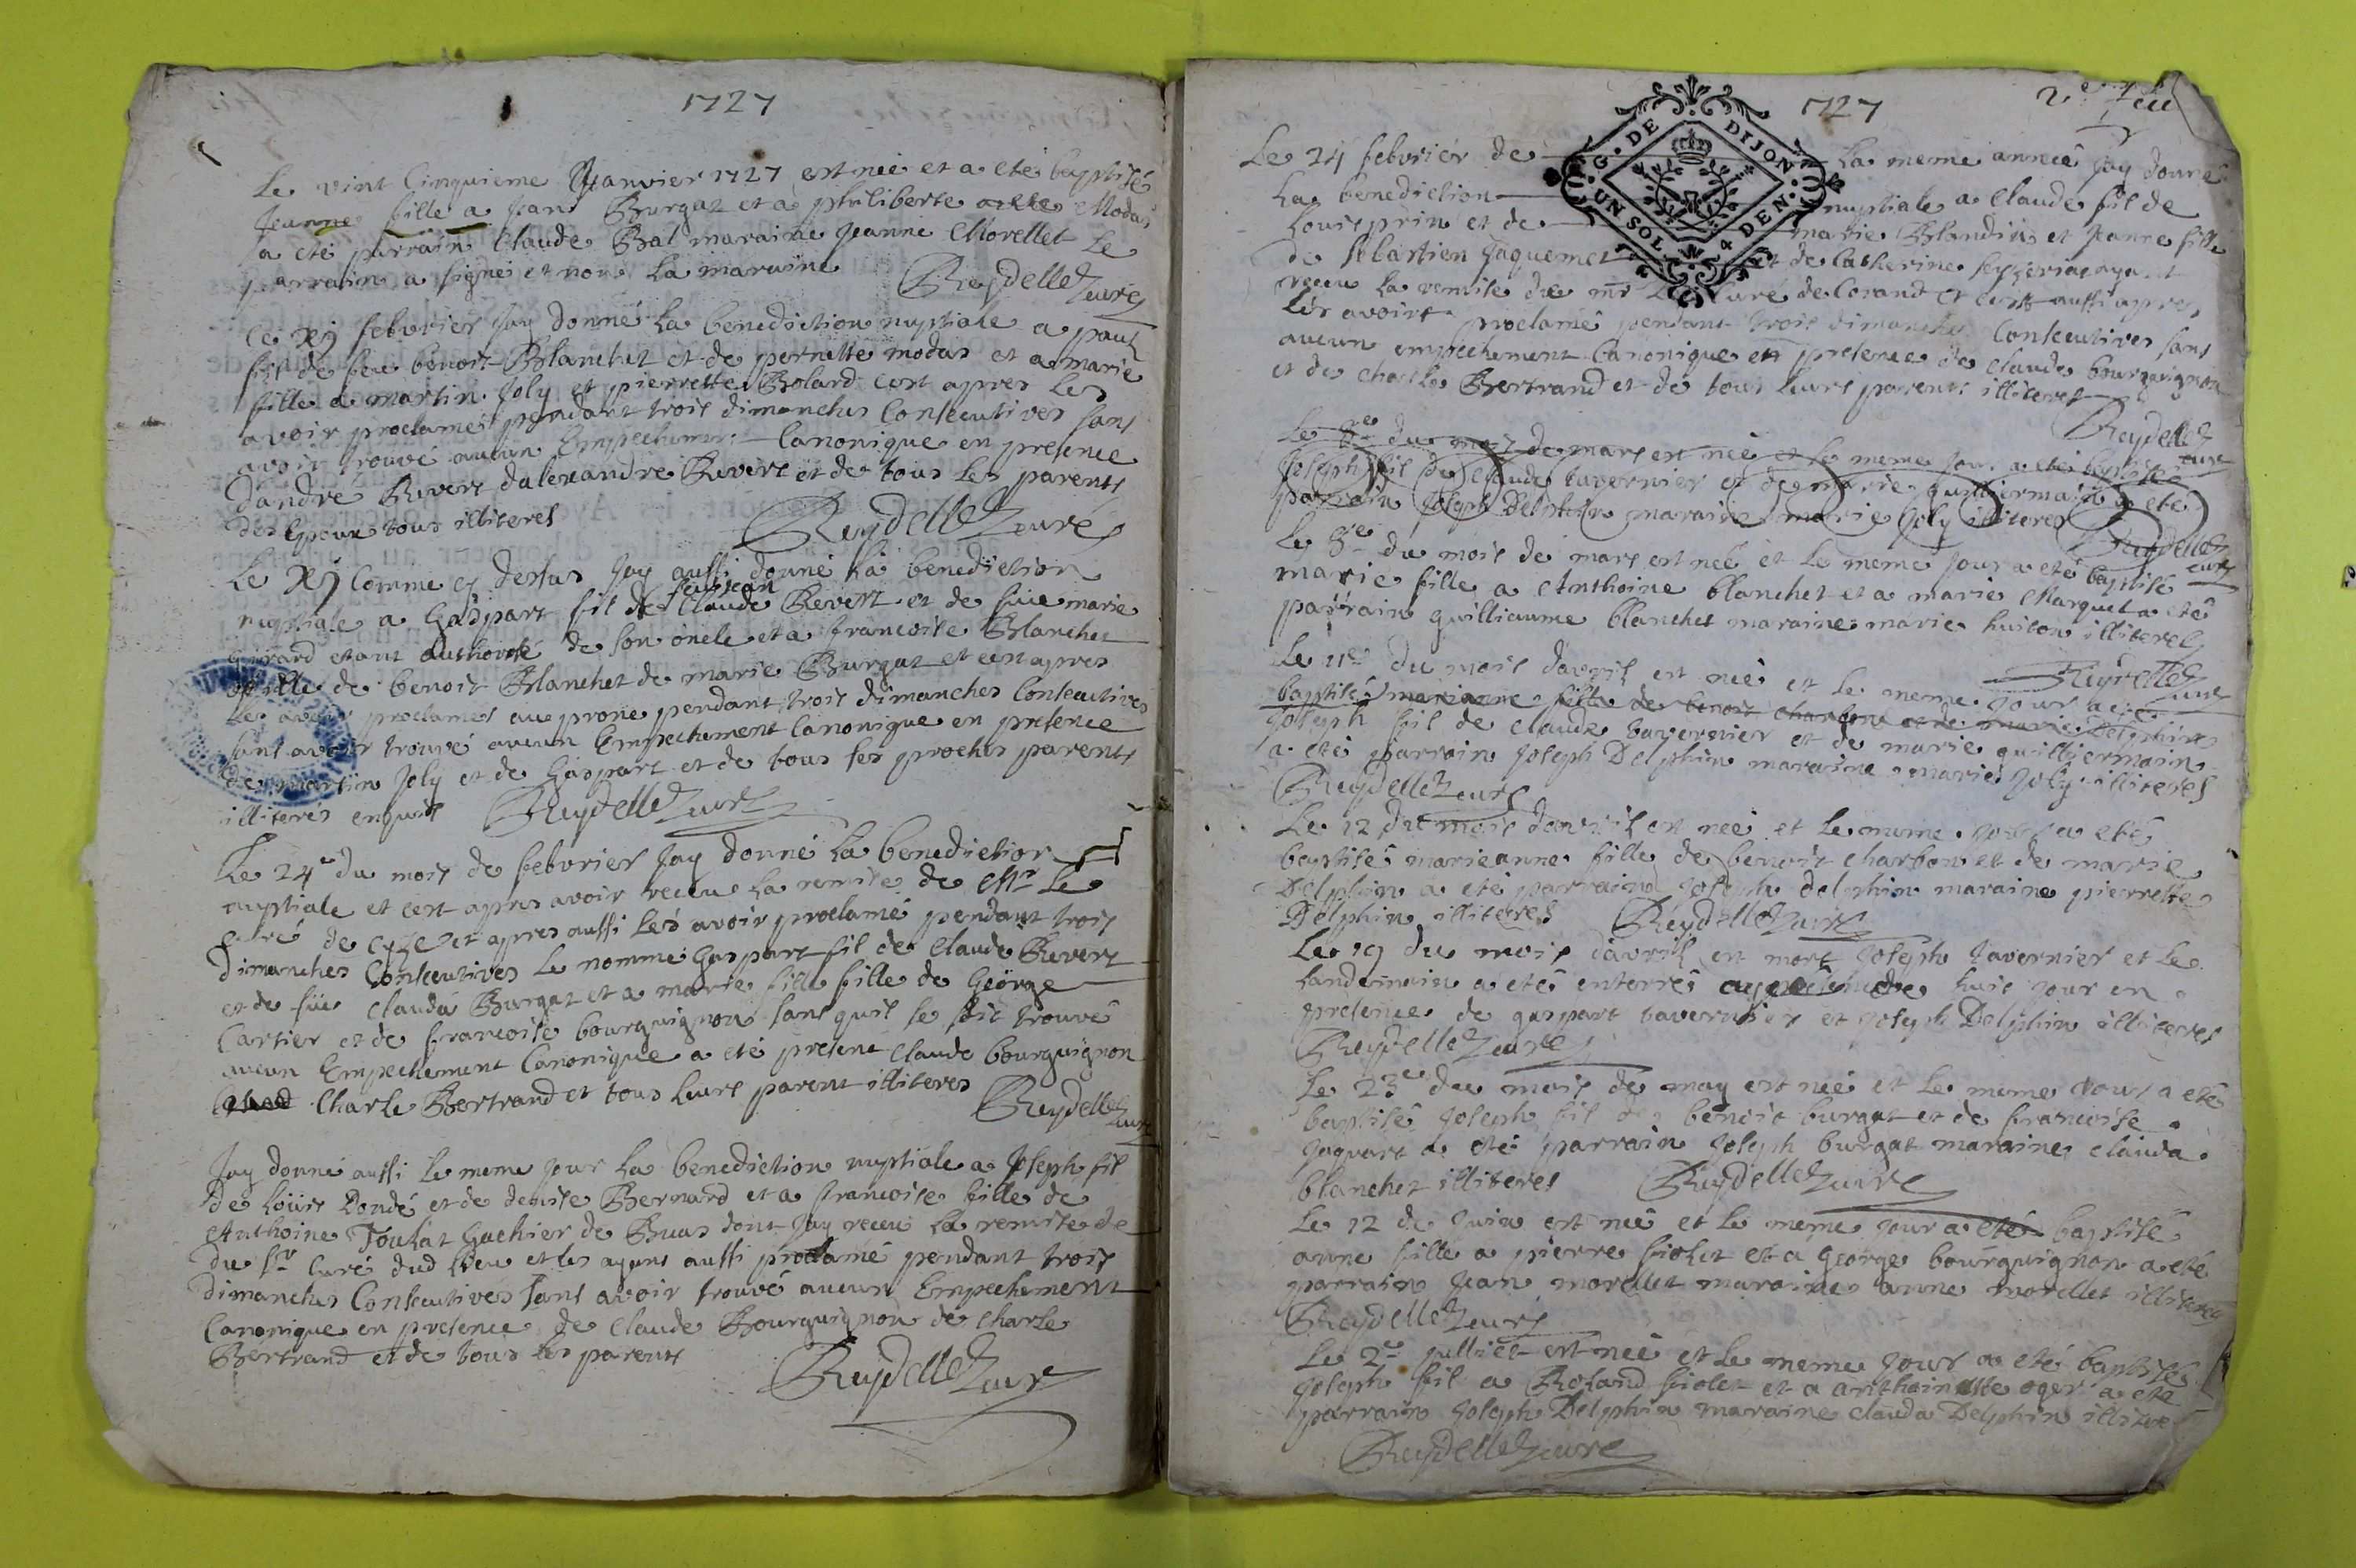 1727
Le vint Cinquieme Janvier 1727 est née et a eté baptisé
Jeanne fille a Jan Burgat et a philiberte Modas
a eté parrain Claude Bal maraine Jeanne Morellet Le
parrain a signé et non la maraine Reydellet curé
Ce xij febvrier Jay donné la benediction nuptiale a paul
fils de feu benoit Blanchet et de pernette modas et a marie
fille a martin Joly et pierrette Bolard cest apres les
avoir proclamés pendant trois dimanches Consecutives sans
avoir trouvé aucun Empechement Canonique en presence
dandre Revert dalexandre Revert et de tous les parents
des Epoux tous illiteres Reydellet curé
Le xij Comme cy dessus Jay aussi donné la benediction
feu jean
nuptiale a Gaspart fil de Claude Revert et de füe marie
girard etant authorisé de son oncle et a francoise Blanchet
fille de benoit Blanchet de marie Burgat et cest apres
les avoir proclamés au prone pendant trois dimanches Consecutives
sans avoir trouvé aucun Empechement Canonique en presence
de martin Joly et de Gaspart et de tous ses proches parents
illiterés enquis Reydellet curé
Le 24e du mois de febvrier Jay donné la benediction
nuptiale et cest apres avoir receu la remise de Mr Le
curé de cyze et apres aussi les avoir proclamé pendant trois
Dimanches Consecutives le nommé Gaspart fil de Claude Revert
et de füe Clauda Burgat et a marie fille de George
Cartier et de francoise bourguignon sans quil se soit trouvé
aucun Empechement Canonique a eté present Claude bourguignon
Charle Bertrand et tous leurs parent illiteres Reydellet curé
Jay donné aussi le meme jour la benediction nuptiale a Joseph fil
de Loüis Dondé et de denise Bernard et a francoise fille de
Anthoine Foulat Gachier de Buas dont Jay receu la remise de
du Sr Curé dud lieu et les ayant aussi proclamé pendant trois
dimanches Consecutives sans avoir trouvé aucun Empechement
Canonique en presence de Claude Bourguignon de Charle
Bertrand et de tous les parents Reydellet curé
1727
2e feu
G. DE DIJON
UN SOL 4 DEN.
Le 24 febvrier de la meme année Jay donné
La benediction nuptiale a Claude fil de
Louis prin et de marie Blandin et Jeanne fille
de sebastien Jaquemet et de Catherine seyzeriat ayant
receu la remise de mr Le Curé de Corand et cest aussi apres
les avoirs proclamé pendant trois dimanches Consecutives sans
aucun empechement Canonique en presence de Claude bourguignon
et de Charles Bertrand et de tous leurs parents illiteres
Reydellet curé
Le 8e du mois de mars est née et le meme jour a eté baptisé
Joseph fil de Claude tavernier et de marie guilliermain a eté
parrain Joseph Delphin maraine marie Joly illiteres
Reydellet curé
Le 8e du mois de mars est née et Le meme Jour a eté baptisé
marie fille a Anthoine blanchet et a marie Marquet a eté
parrain guilliaume blanchet maraine marie huison illiteres
Reydellet curé
Le 11e du mois davril est née et le meme jour a eté
baptisé marieanne fille de benoit charbon et de marie Delphin
Joseph fil de claude tavernier et de marie guilliermain
a eté parrain Joseph Delphin maraine marie Joly illiteres
Reydellet curé
Le 12 du mois davril est née et le meme jour a eté
baptisé marieanne fille de benoit charbon et de marie
Delphin a eté parrain Joseph delphin maraine pierrette
Delphin illiteres Reydellet curé
Le 19 du mois davril est mort Joseph Tavernier et Le
Landemain a eté enterré agé de huit jour en
presence de gaspart tavernier et Joseph Delphin illiteres
Reydellet curé
Le 23e du mois de may est née et le meme Jour a eté
baptisé Joseph fil de benoit burgat et de francoise
Jaquart a eté parrain Joseph burgat maraine clauda
blanchet illiteres Reydellet curé
Le 12 de Juin est née et le meme jour a eté baptisé
anne fille a pierre fiolet et a George bourguignon a eté
parrain Jean morellet maraine anne morellet illiteres
Reydellet curé
Le 2e julliet est née et le meme jour a eté baptisé
Joseph fil a Roland fiolet et a anthoinette oger a eté
parrain Joseph Delphin maraine clauda Delphin illitere
Reydellet curé